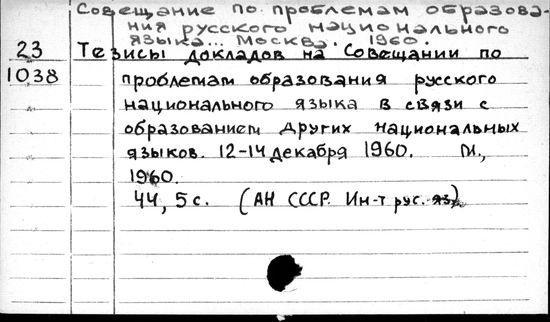 Совещание по проблемам образова-
ния русского национального
языка... Москва. 1960.
23 Тезисы докладов на Совещании по
1038 проблемам образования русского
национального языка в связи с
образованием других национальных
языков. 12-14 декабря 1960. М.,
1960.
44, 5 с. (АН СССР. Ин-т рус. яз)